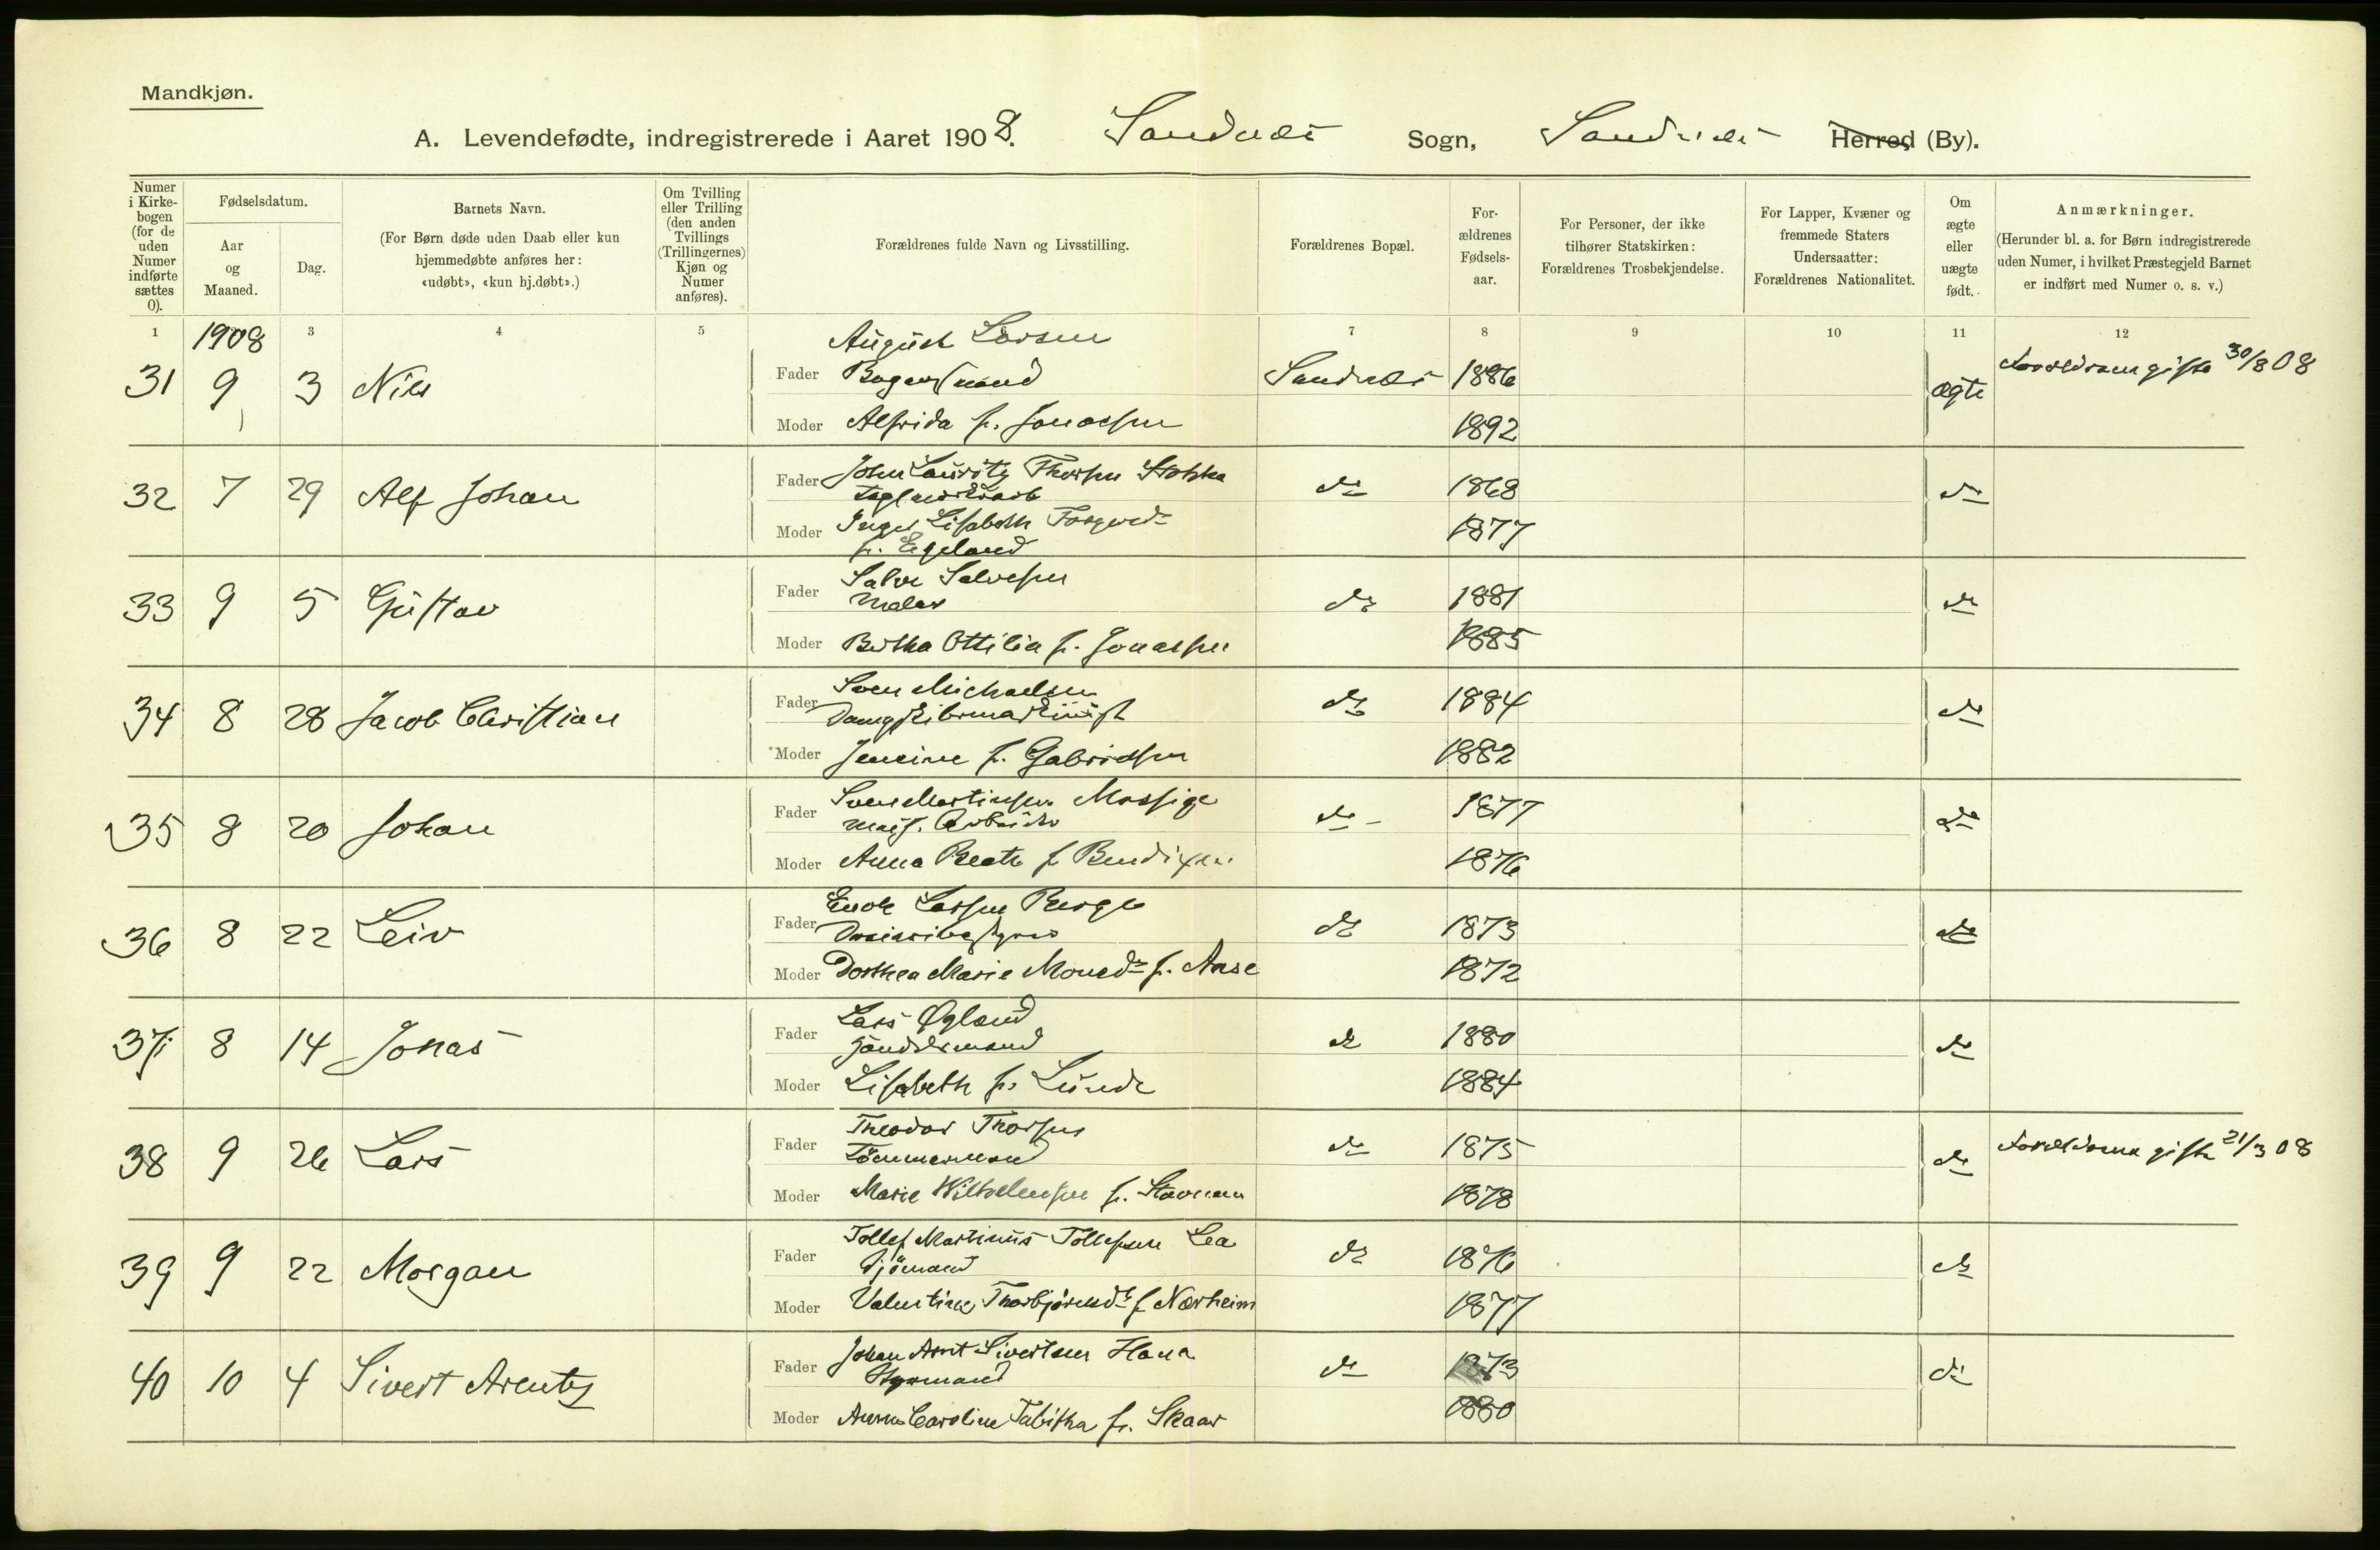 Mandkjøn.
A. Levendefødte, indregistrerede i Aaret 1908. Sandnæs Sogn, Sandnæs Herred (By).
Numer i Kirkebogen (for de uden Numer indførte sættes 0).
Fødselsdatum.
Aar og Maaned.
Dag.
Barnets Navn.
(For Børn døde uden Daab eller kun hjemmedøbte anføres her: «udøbt», «kun hj.døbt».)
Om Tvilling eller Trilling (den anden Tvillings (Trillingernes) Kjøn og Numer anføres).
Forældrenes fulde Navn og Livsstilling.
Forældrenes Bopæl.
Forældrenes Fødselsaar.
For Personer, der ikke tilhører Statskirken: Forældrenes Trosbekjendelse.
For Lapper, Kvæner og fremmede Staters Undersaatter: Forældrenes Nationalitet.
Om ægte eller uægte født.
Anmærkninger.
(Herunder bl. a. for Børn indregistrerede uden Numer, i hvilket Præstegjeld Barnet er indført med Numer o. s. v.)
1 3 4 5 7 8 9 10 11 12
1908
August Larsen
31 9 3 Nils Fader Sandnæs 1886 ægte Forældrene gifte 30/8 08
Moder Alfrida f. Jonassen 1892
32 7 29 Alf Johan Fader John Lauritz Thorsen Stokka do 1868 do
Moder Inger Lisabeth Torgersd. 1877
f. Egeland
33 9 5 Gustav Fader Salve Salvesen do 1881 do
Maler
Moder Bertha Ottilia f. Jonassen 1885
34 8 28 Jacob Christian Fader Sven Michaelsen do 1884 do
Moder Jensine f. Gabrielsen 1882
35 8 20 Johan Fader Sven Martinsen Mossige do 1877 do
Moder Anna Beate f Bendixen 1876
36 8 22 Leiv Fader Enok Larsen Berge do 1873 do
Moder Dorthea Marie Monsd. f. Aase 1872
37 8 14 Jonas Fader Lars Øgland do 1880 do
Handelsmand
Moder Lisabeth f. Lunde 1884
38 9 26 Lars Fader Theodor Thorsen do 1875 do Forældrene gifte 21/3 08
Tømmermand
Moder Marie Wilhelmsen f. 1878
39 9 22 Morgan Fader Tollef Martinus Tollefsen Lea do 1876 do
Sjømand
Moder Valentine Thorbjørnsd. f Nærheim 1877
40 10 4 Sivert Arentz Fader Johan Arnt Sivertsen Hana do 1873 do
Styrmand
Moder Anna Caroline Tabitha f. Skaar 1880